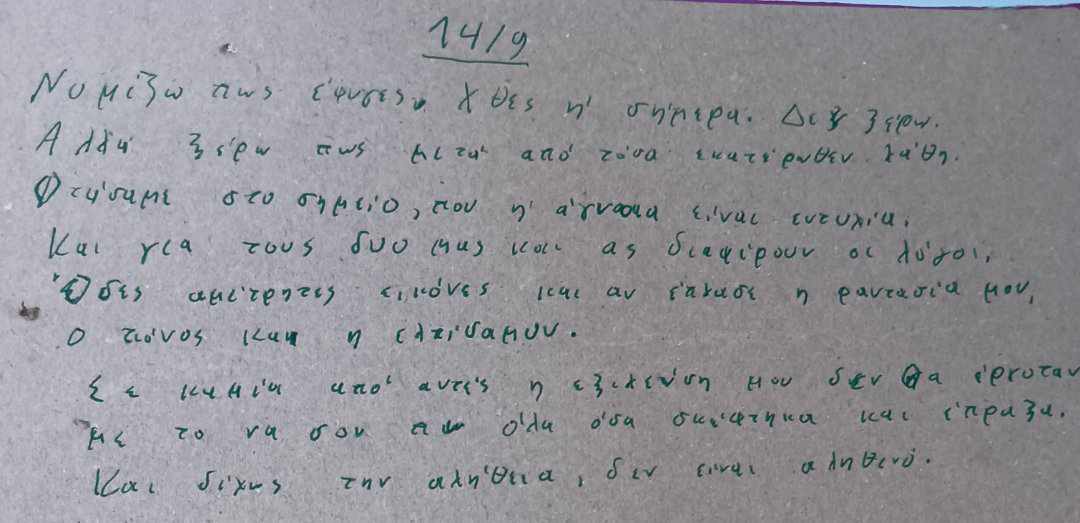 14/9
Νομίζω πως έφυγες χθες ή σήμερα. Δεν ξέρω.
Αλλά ξέρω πως μετά από τόσα εκατέρωθεν λάθη.
Φτάσαμε στο σημείο, που η άγνοια είναι ευτυχία.
Και για τους δυο μας και ας διαφέρουν οι λόγοι.
Όσες αμέτρητες εικόνες και αν έπλασε η φαντασία μου,
Ο πόνος και η ελπίδα μου.
Σε καμία από αυτές η εξιλέωση μου δεν θα έρχοταν
με το να σου πω όλα όσα σκέφτηκα και έπραξα.
Και δίχως την αλήθεια, δεν είναι αληθινό.